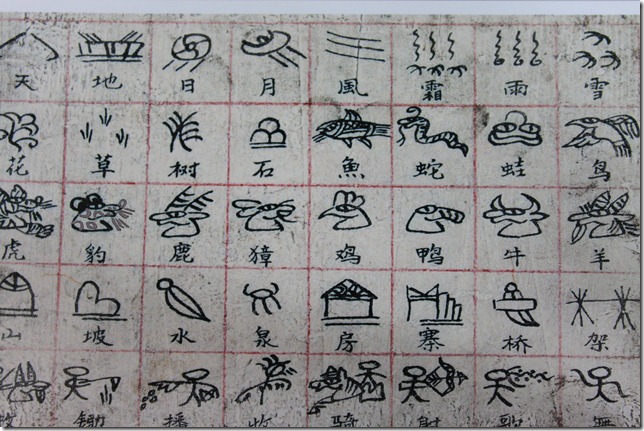 天 地 日 月 風 霜 雨 雪
花 草 树 石 魚 蛇 蛙 鸟
虎 豹 鹿 獐 鸡 鸭 牛 羊
山 坡 水 泉 房 寨 桥 架
锄 播 收 骑 射